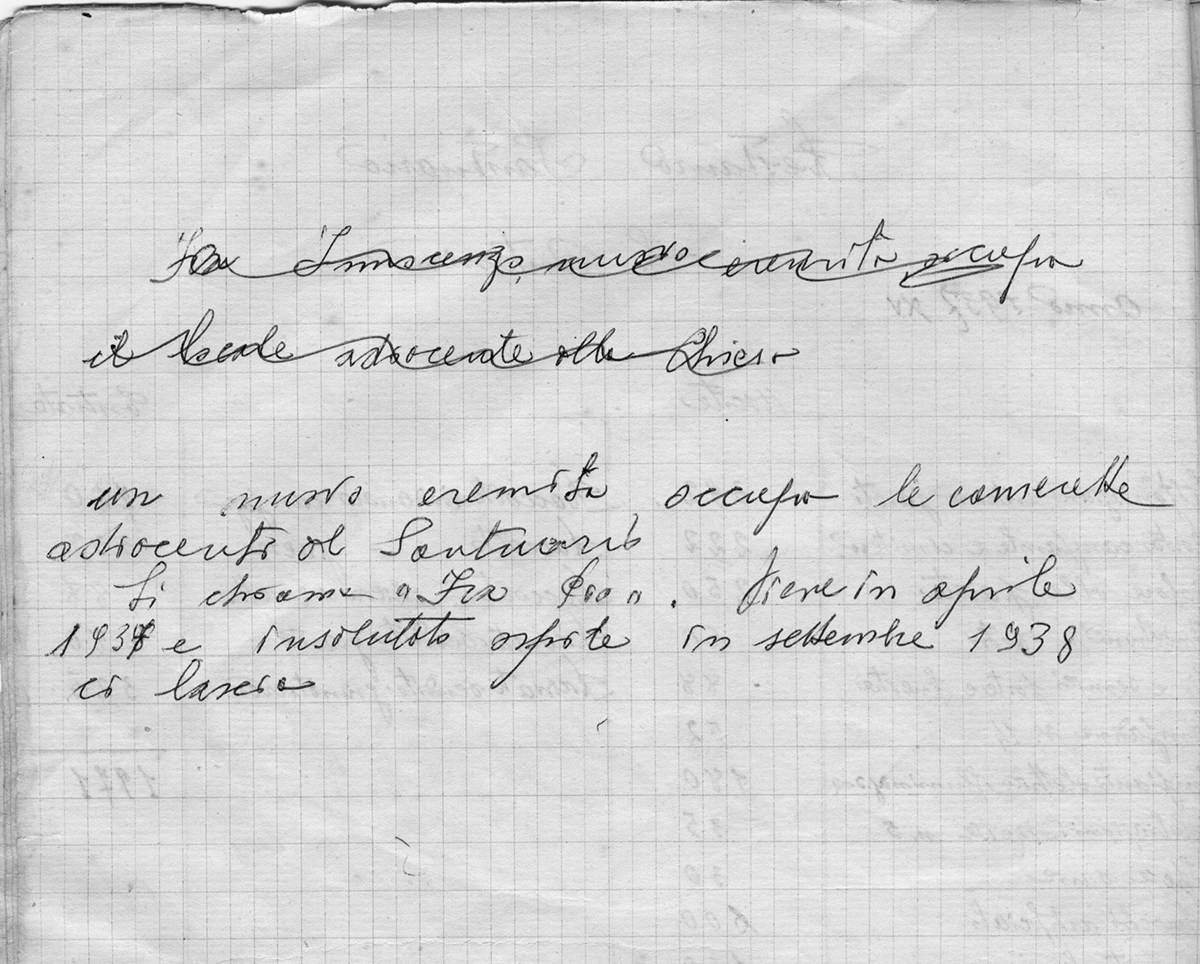 Fra Innocenzo, nuovo eremita occupa
il locale adiacente alla Chiesa
un nuovo eremita occupa le camerette
adiacenti al Santuario
Si chiama "Fra Pio". Viene in aprile
1937 e insalutato ospite in settembre 1938
ci lascia